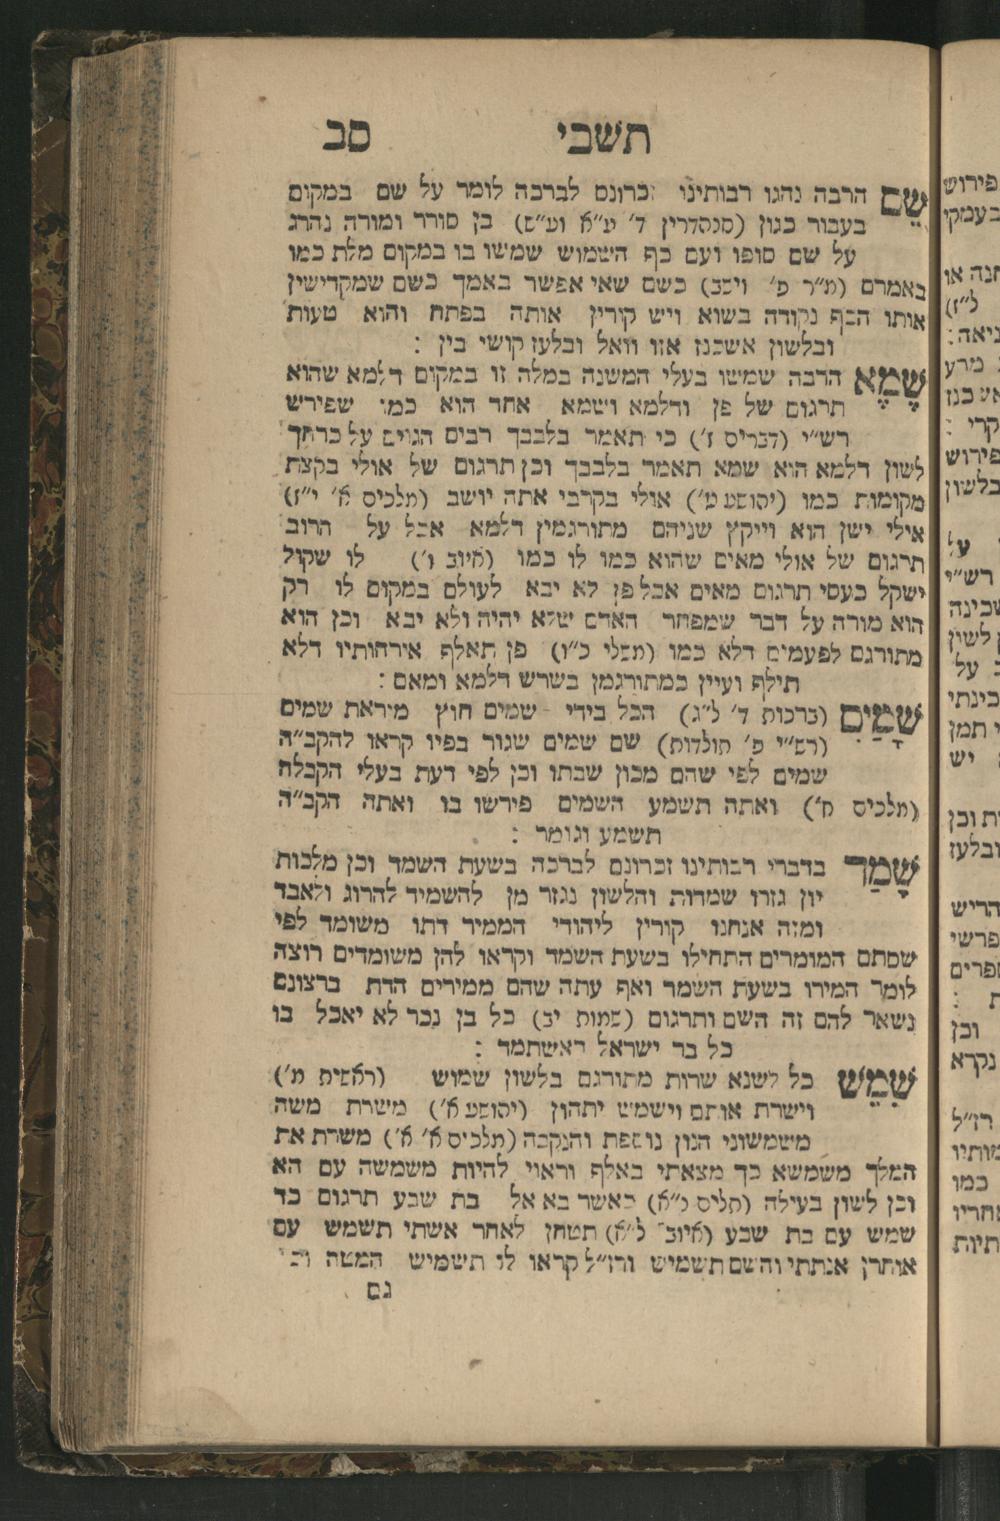 תשבי סב
שֵׁם הרבה נהגו רבותינו זכרונם לברכה לומר על שם במקום
בעבור כגון (סנהדרין ד׳ ע״א וע״ב) בן סורר ומורה נהרג
על שם סופו ועם כף השמוש שמשו בו במקום מלת כמו
באמרם (מ״ר פ׳ וישב) כשם שאי אפשר באמך כשם שמקדישין
אותו הכף נקודה בשוא ויש קורין אותה בפתח והוא טעות
ובלשון אשכנז אזו וואל ובלעז קושי בין :
שֶׁמָּא הרבה שמשו בעלי המשנה במלה זו במקום דלמא שהוא
תרגום של פן ודלמא ושמא אחד הוא כמו שפירש
רש״י (דברים ז׳) כי תאמר בלבבך רבים הגוים על כרחך
לשון דלמא הוא שמא תאמר בלבבך וכן תרגום של אולי בקצת
מקומות כמו (יהושע ט׳) אולי בקרבי אתה יושב (מלכים א׳ י״ז)
אולי ישן הוא וייקץ שניהם מתורגמין דלמא אבל על הרוב
תרגום של אולי מאים שהוא כמו לו כמו (איוב ו׳) לו שקול
ישקל כעסי תרגום מאים אבל פן לא יבא לעולם במקום לו רק
הוא מורה על דבר שמפחד האדם שלא יהיה ולא יבא וכן הוא
מתורגם לפעמים דלא כמו (משלי כ״ו) פן תאלף אירחותיו דלא
תילף ועיין במתורגמן בשרש דלמא ומאם :
שָׁמַיִם (ברכות ד׳ ל״ג) הכל בידי שמים חוץ מיראת שמים
(רש״י פ׳ תולדות) שם שמים שגור בפיו קראו להקב״ה
שמים לפי שהם מכון שבתו וכן לפי דעת בעלי הקבלה
(מלכים ח׳) ואתה תשמע השמים פירשו בו ואתה הקב״ה
תשמע וגומר :
שָׁמַד בדברי רבותינו זכרונם לברכה בשעת השמד וכן מלכות
יון גזרו שמדות והלשון נגזר מן להשמיד להרוג ולאבד
ומזה אנחנו קורין ליהודי הממיר דתו משומד לפי
שסתם המומרים התחילו בשעת השמד וקראו להן משומדים רוצה
לומר המירו בשעת השמד ואף עתה שהם ממירים הדת ברצונם
נשאר להם זה השם ותרגום (שמות יב) כל בן נכר לא יאכל בו
כל בר ישראל דאשתמד :
שִׁמֵּשׁ כל לשנא שרות מתורגם בלשון שמוש (ראשית מ׳)
וישרת אותם וישמש יתהון (יהושע א׳) משרת משה
משמשוני הנון נוספת והנקבה (מלכים א׳ א׳) משרת את
המלך משמשא כך מצאתי באלף וראוי להיות משמשה עם הא
וכן לשון בעילה (תלים נ״א) כאשר בא אל בת שבע תרגום כד
שמש עם בת שבע (איוב ל״א) תטחן לאחר אשתי תשמש עם
אוחרן אנתתי והשם תשמיש ורז״ל קראו לו תשמיש המטה
גם